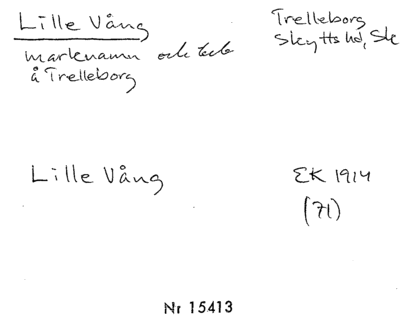 Lille Vång
Trelleborg
Skytts hd, Sk
marknamn och bebe
å Trelleborg
Lille Vång
EK 1914
(71)
Nr 15413